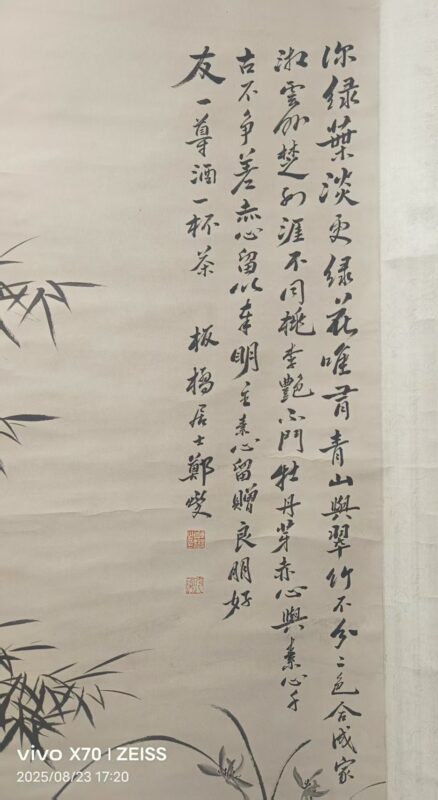 深绿葉淡更绿花唯背青山與翠竹不分二色合成家
湘雲外楚江涯不同桃李艷不鬥牡丹芽赤心與素心千
古不争差赤心留以奉明主素心留贈良朋好
友一尊酒一杯茶
板橋居士鄭燮
vivo X70 | ZEISS
2025/08/23 17:20